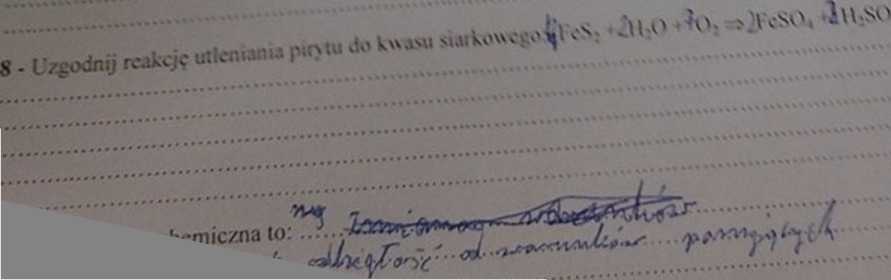 8 - Uzgodnij reakcję utleniania pirytu do kwasu siarkowego: FeS₂ + 2H₂O + 7O₂ ⇒ 2FeSO₄ + 2H₂SO
emiczna to:
odległość od warunków panujących